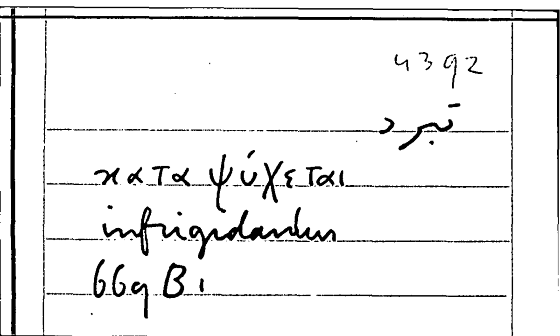 4392
تبرد
κατα ψύχεται
infrigidantur
669 B 1